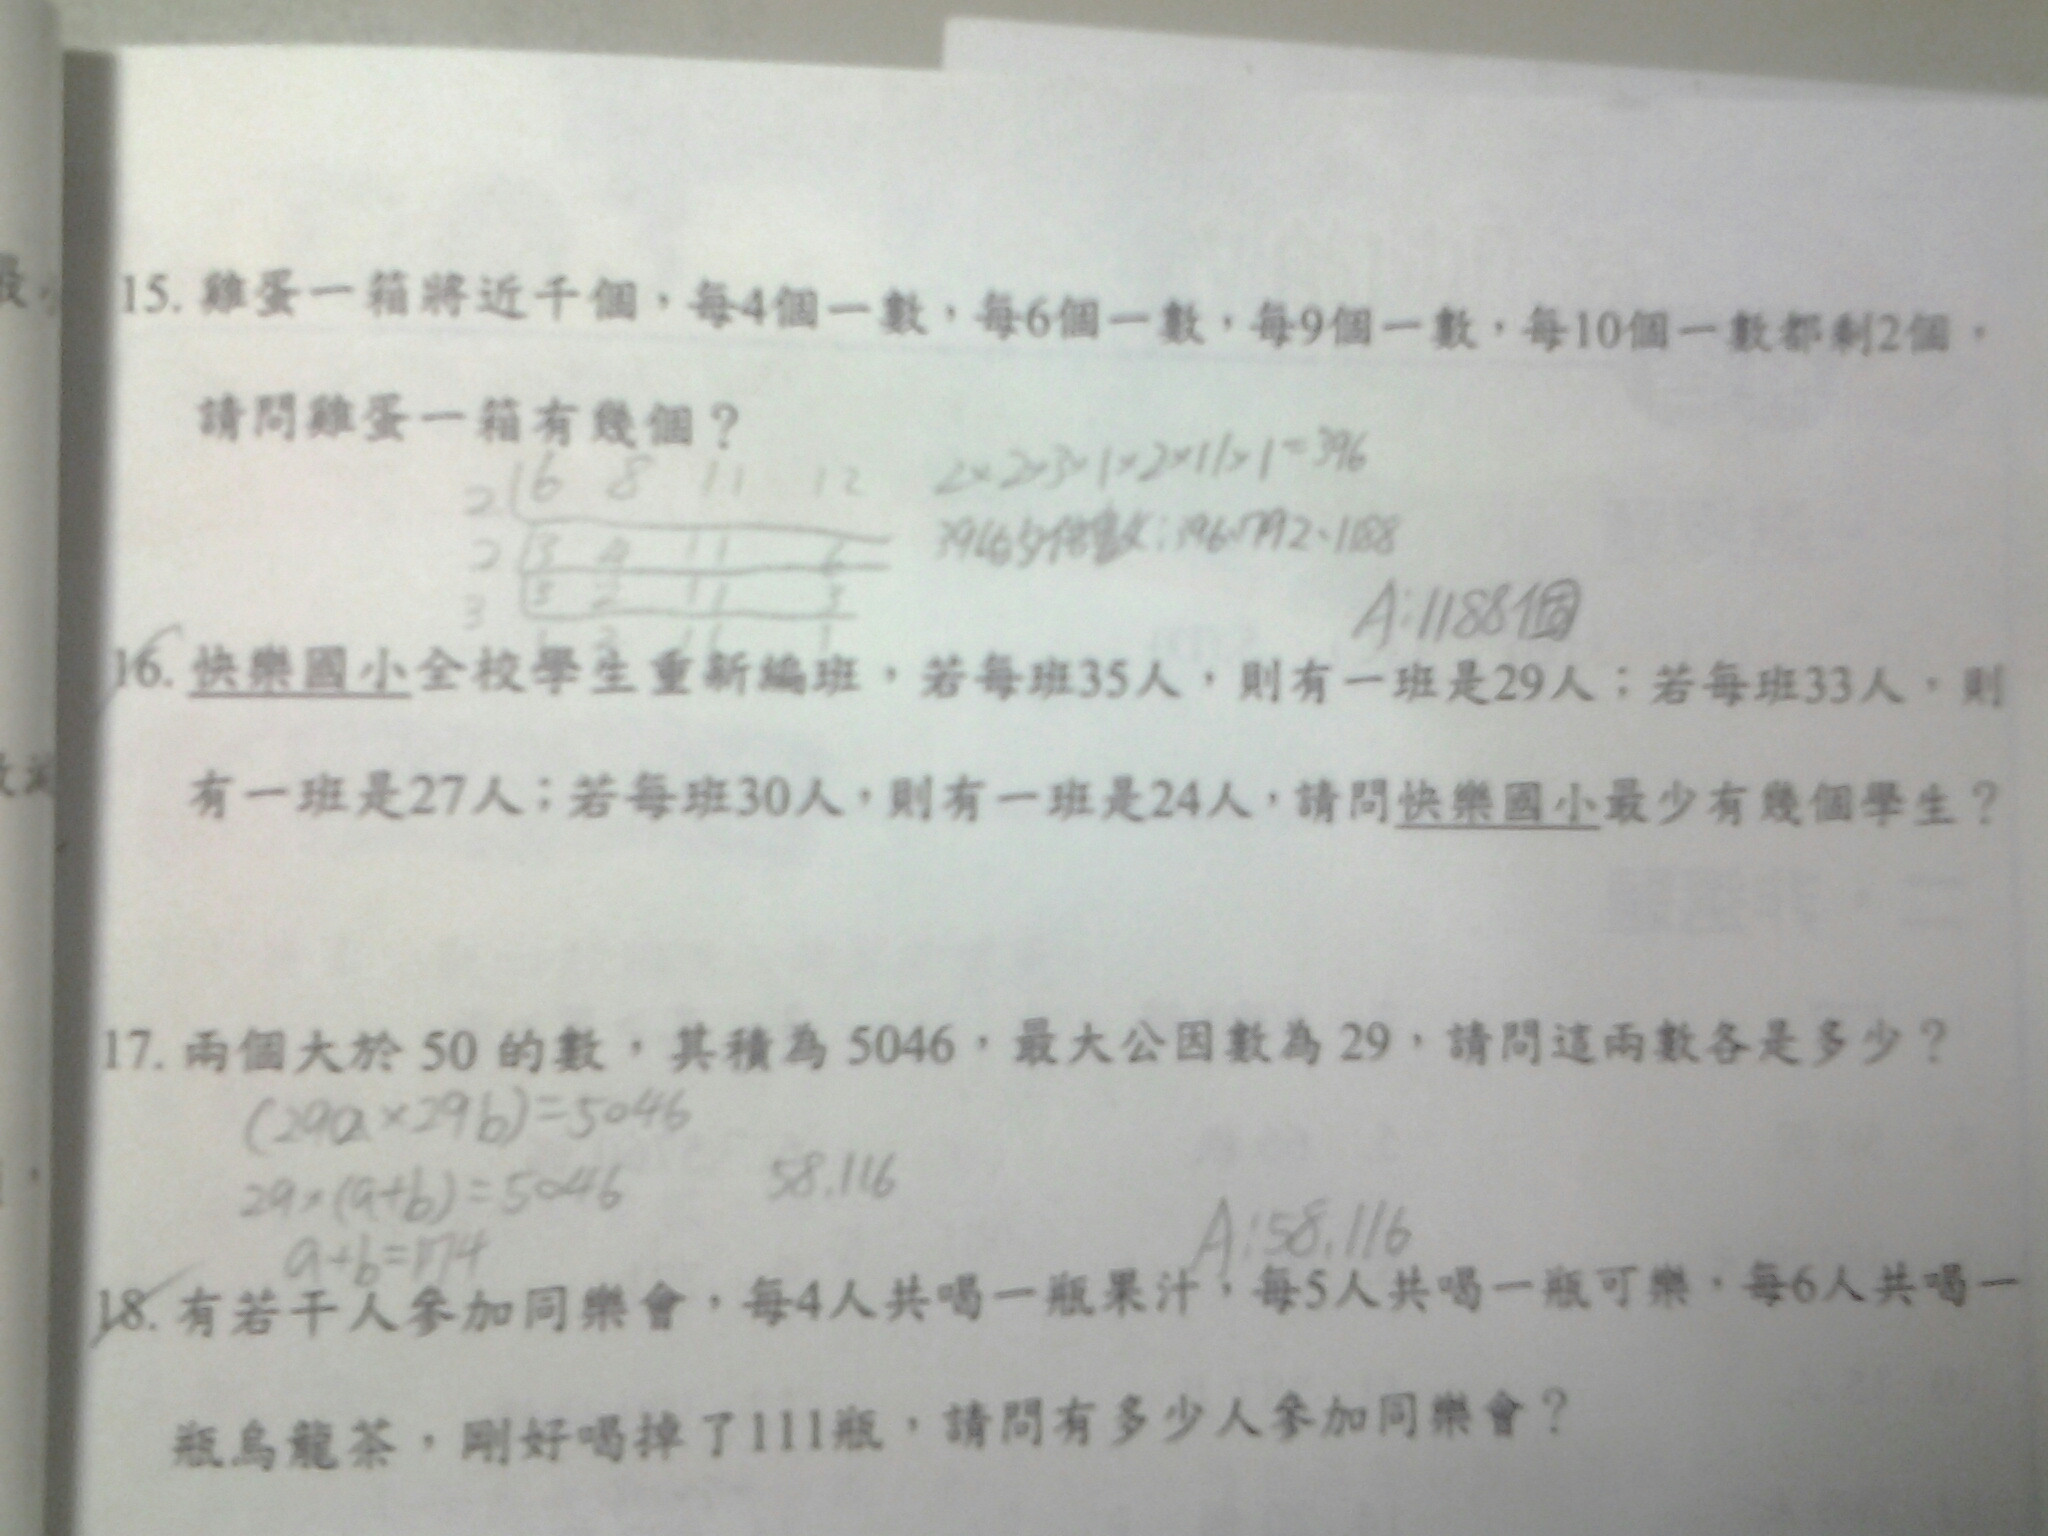 15. 雞蛋一箱將近千個，每4個一數，每6個一數，每9個一數，每10個一數都剩2個，
請問雞蛋一箱有幾個？
2 6 8 11 12
2×2×3×1×2×11×1=396
2 3 4 11 6
396的倍數:396、792、1188
3 3 2 11 3
A:1188個
1 2 11 1
16. 快樂國小全校學生重新編班，若每班35人，則有一班是29人；若每班33人，則
有一班是27人；若每班30人，則有一班是24人，請問快樂國小最少有幾個學生？
17. 兩個大於 50 的數，其積為 5046，最大公因數為 29，請問這兩數各是多少？
(29a×29b)=5046
29×(a+b)=5046 58.116
A:58.116
a+b=174
18. 有若干人參加同樂會，每4人共喝一瓶果汁，每5人共喝一瓶可樂，每6人共喝一
瓶烏龍茶，剛好喝掉了111瓶，請問有多少人參加同樂會？